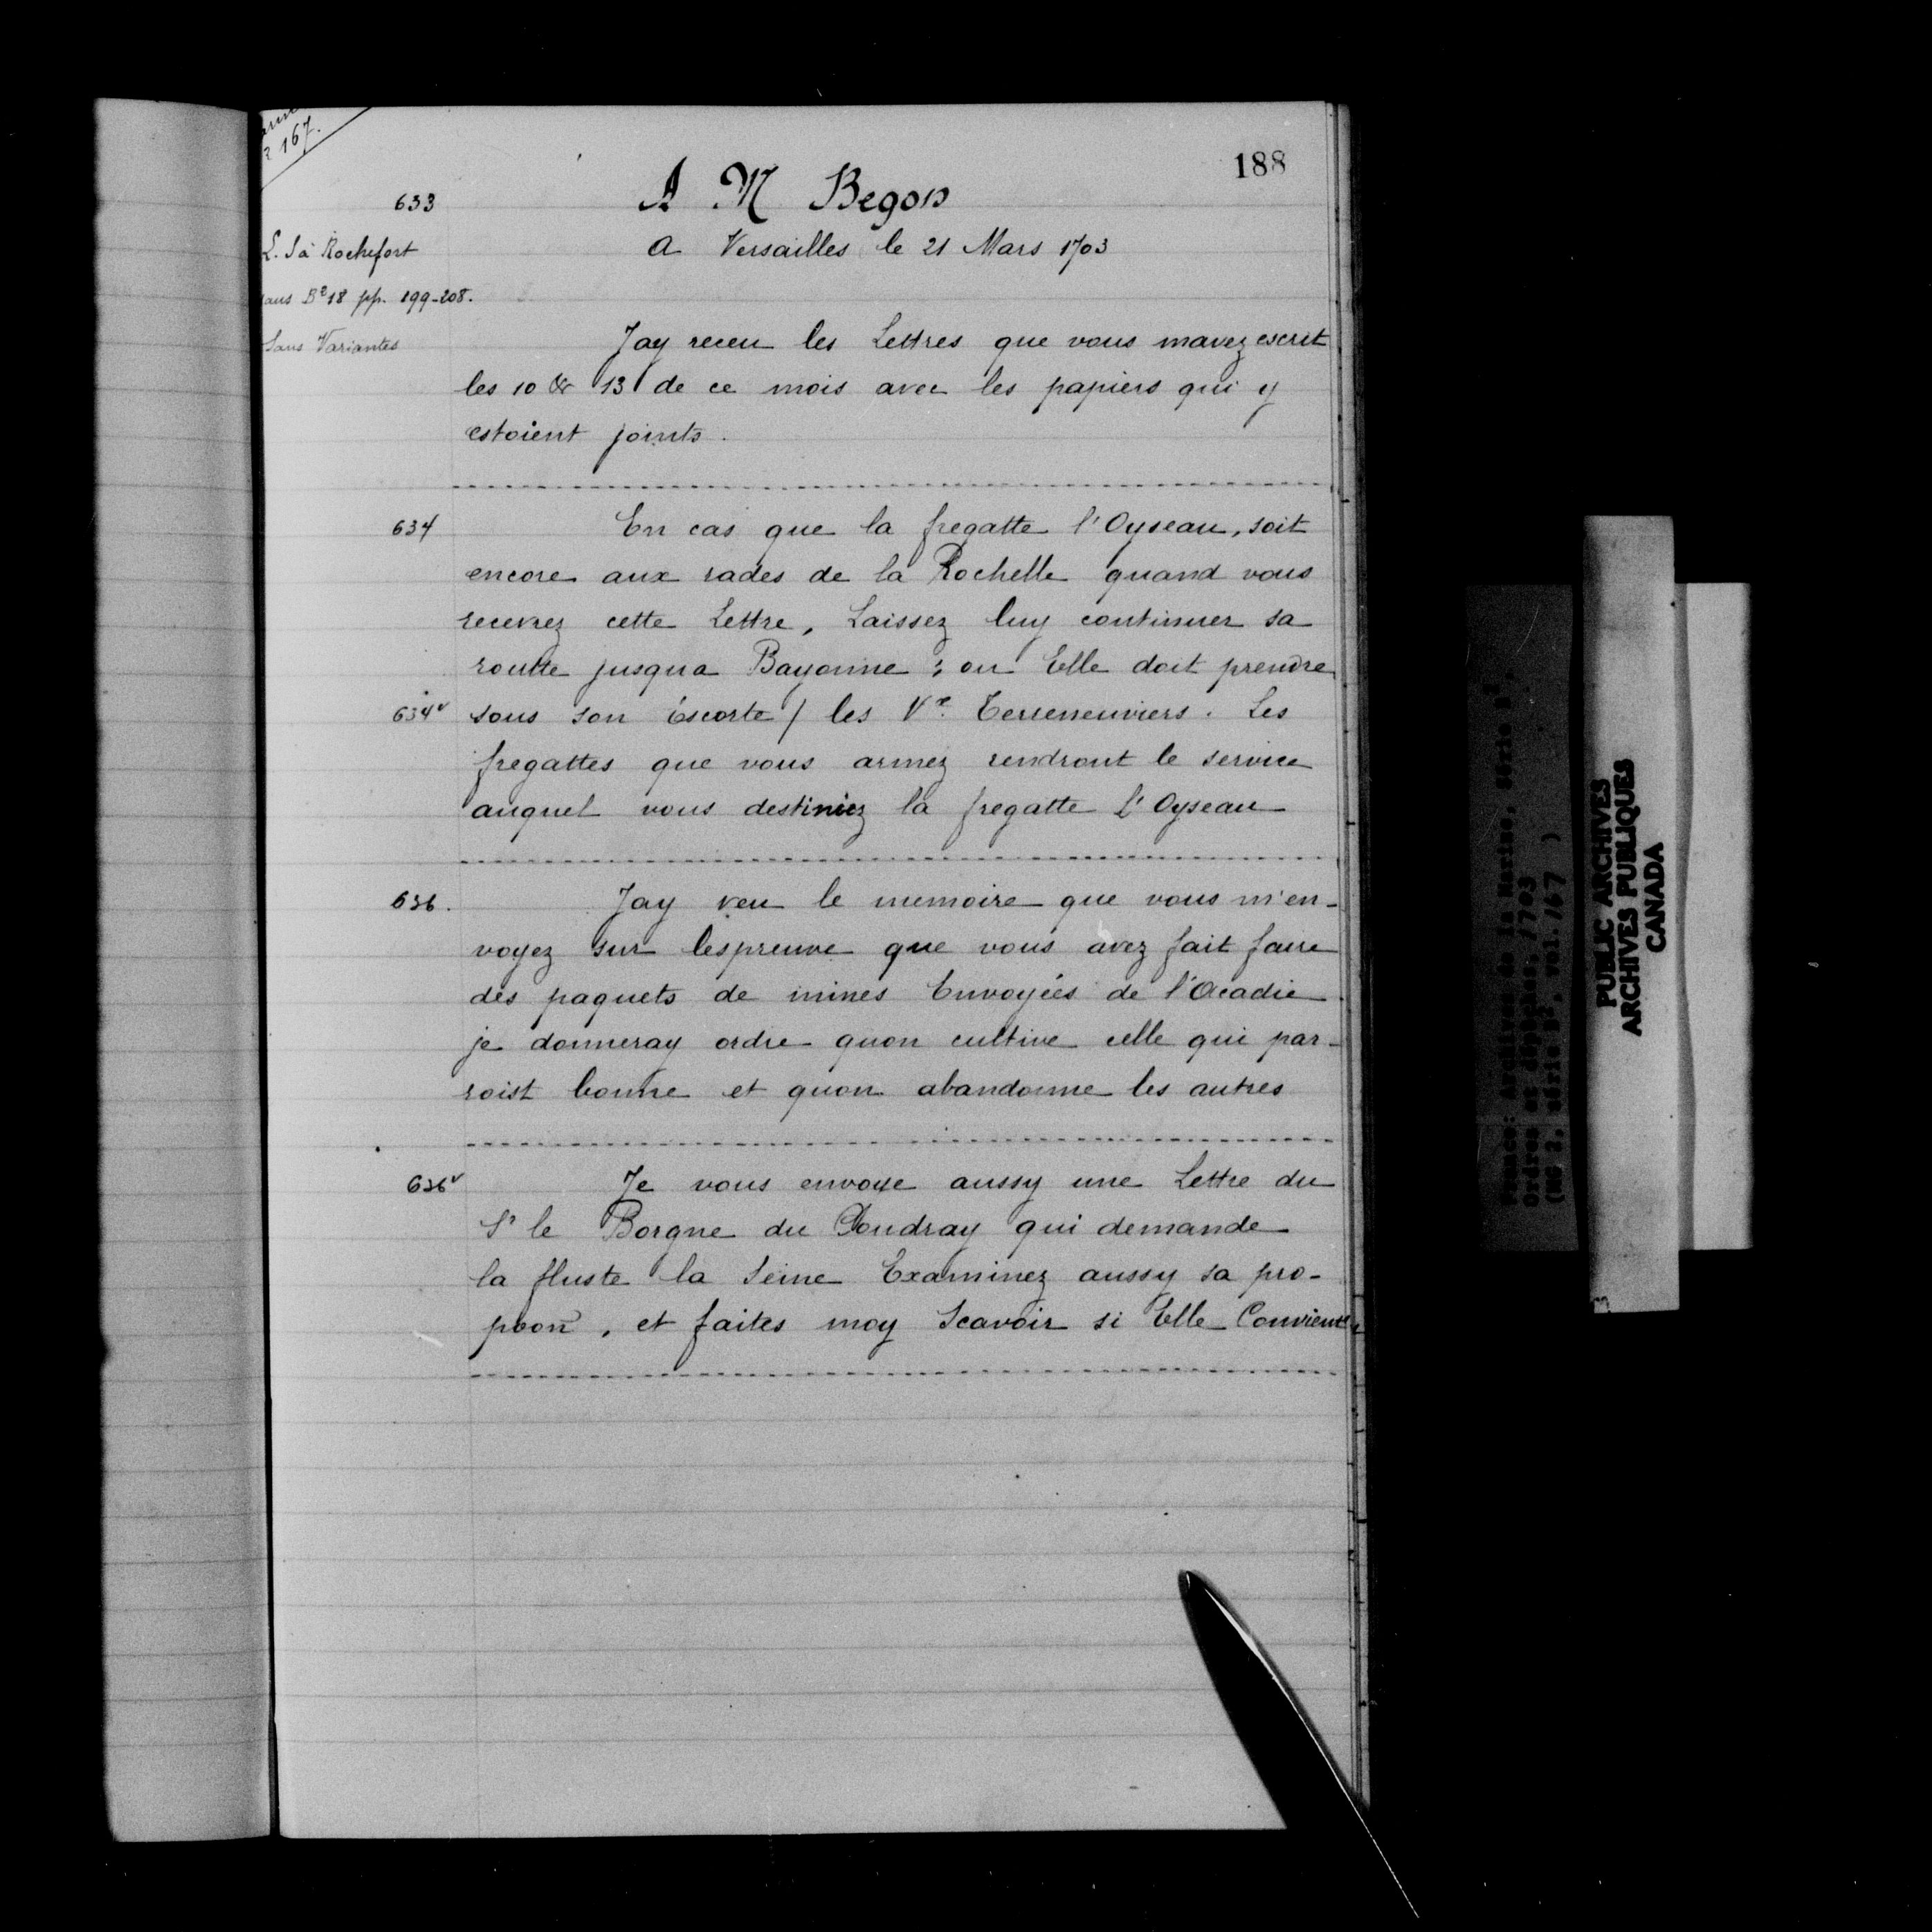 2 167.
188
633
A M Begon
L. S à Rochefort
A Versailles le 21 Mars 1703
dans B² 18 pp. 199-208.
Sans Variantes
Jay receu les Lettres que vous mavez escrit
les 10 & 13 de ce mois avec les papiers qui y
estoient joints.
634
En cas que la fregatte l'Oyseau, soit
encore aux rades de la Rochelle quand vous
recevrez cette Lettre, Laissez luy continuer sa
routte jusqua Bayonne; ou Elle doit prendre
634v
sous son Escorte / les Vx. Terreneuviers. Les
fregattes que vous armez rendront le service
auquel vous destiniez la fregatte l'Oyseau
636.
Jay veu le memoire que vous m'en-
voyez sur lespreuve que vous avez fait faire
des paquets de mines Envoyées de l'Acadie
je donneray ordre quon cultive celle qui par-
roist bonne et quon abandonne les autres
636v
Je vous envoye aussy une Lettre du
Sr le Borgne du Coudray qui demande
la fluste la Seine Examinez aussy sa pro-
poon, et faites moy Scavoir si Elle Convient
France: Archives de la Marine, Série B²,
Ordres et dépêches. 1703
(MG 2, série B², vol. 167 )
PUBLIC ARCHIVES
ARCHIVES PUBLIQUES
CANADA